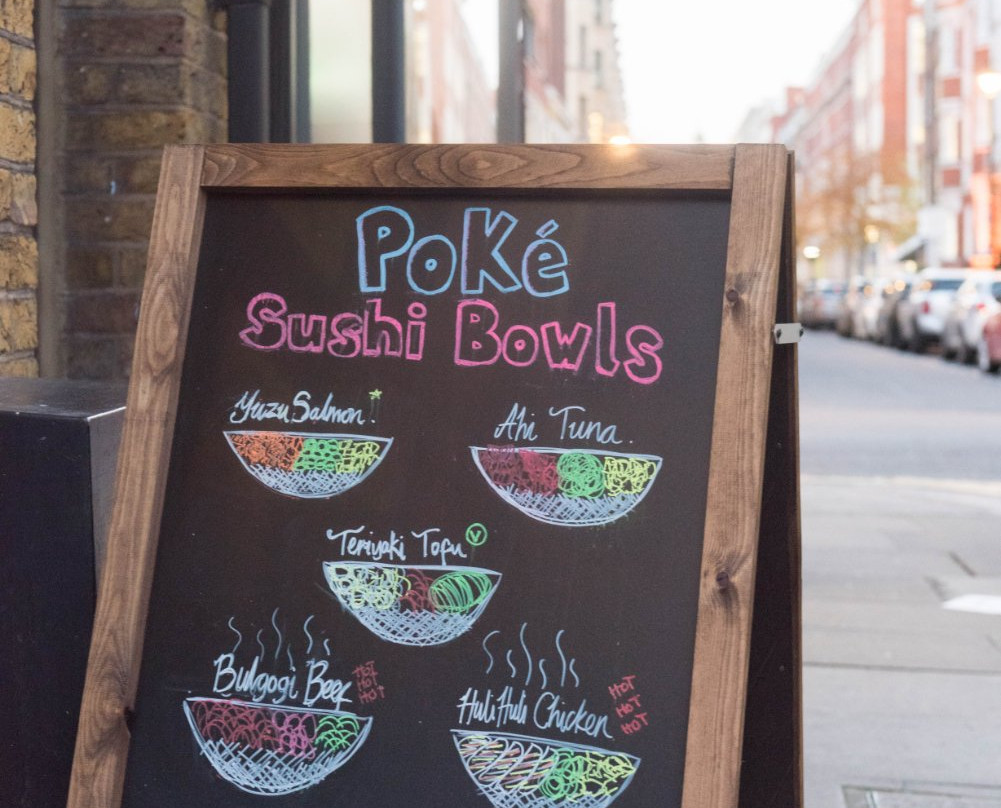 PoKé
Sushi Bowls
Yuzu Salmon.
Ahi Tuna.
Teriyaki Tofu V
Bulgogi Beef
HOT
HOT
HOT
Huli Huli Chicken
HOT
HOT
HOT